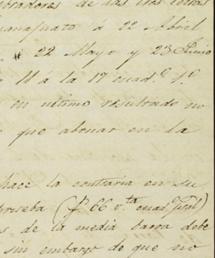 obradores de las tres
Guanajuato á 22 Abril
" 22 Mayo y 23 Junio
11 á la 17 cuad.º y.e
en ultimo resultado no
que abonar en la
hace la contraria en su
prueba (f. 66 v.ta cuad.
de la media barra debe
sin embargo de que no